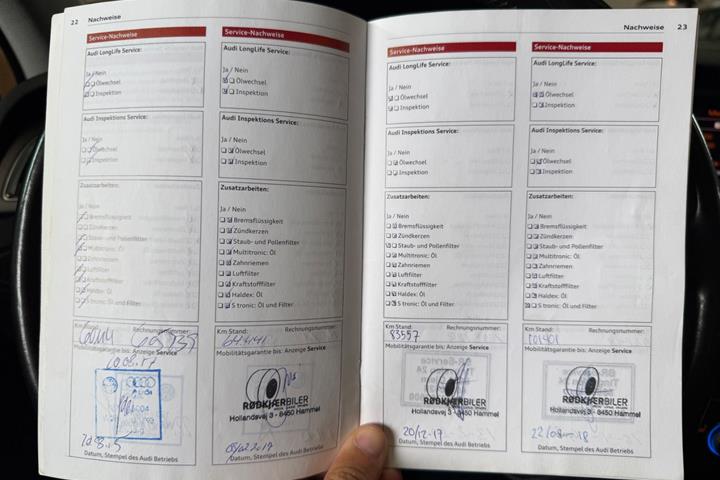 22 Nachweise
Service-Nachweise
Audi LongLife Service:
Ja / Nein
Ölwechsel
Inspektion
Audi Inspektions Service:
Ja / Nein
Ölwechsel
Inspektion
Zusatzarbeiten:
Ja / Nein
Bremsflüssigkeit
Zündkerzen
Staub- und Pollenfilter
Multitronic: Öl
Zahnriemen
Luftfilter
Kraftstofffilter
Haldex: Öl
S tronic: Öl und Filter
Km Stand: Rechnungsnummer:
Mobilitätsgarantie bis: Anzeige Service
Datum, Stempel des Audi Betriebs
Service-Nachweise
Audi LongLife Service:
Ja / Nein
Ölwechsel
Inspektion
Audi Inspektions Service:
Ja / Nein
Ölwechsel
Inspektion
Zusatzarbeiten:
Ja / Nein
Bremsflüssigkeit
Zündkerzen
Staub- und Pollenfilter
Multitronic: Öl
Zahnriemen
Luftfilter
Kraftstofffilter
Haldex: Öl
S tronic: Öl und Filter
Km Stand: Rechnungsnummer:
Mobilitätsgarantie bis: Anzeige Service
RØDKJÆRBILER
Hollandsvej 3 - 8450 Hammel
Datum, Stempel des Audi Betriebs
Nachweise 23
Service-Nachweise
Audi LongLife Service:
Ja / Nein
Ölwechsel
Inspektion
Audi Inspektions Service:
Ja / Nein
Ölwechsel
Inspektion
Zusatzarbeiten:
Ja / Nein
Bremsflüssigkeit
Zündkerzen
Staub- und Pollenfilter
Multitronic: Öl
Zahnriemen
Luftfilter
Kraftstofffilter
Haldex: Öl
S tronic: Öl und Filter
Km Stand: Rechnungsnummer:
83557
Mobilitätsgarantie bis: Anzeige Service
RØDKJÆRBILER
Hollandsvej 3 - 8450 Hammel
20/12-17
Datum, Stempel des Audi Betriebs
Service-Nachweise
Audi LongLife Service:
Ja / Nein
Ölwechsel
Inspektion
Audi Inspektions Service:
Ja / Nein
Ölwechsel
Inspektion
Zusatzarbeiten:
Ja / Nein
Bremsflüssigkeit
Zündkerzen
Staub- und Pollenfilter
Multitronic: Öl
Zahnriemen
Luftfilter
Kraftstofffilter
Haldex: Öl
S tronic: Öl und Filter
Km Stand: Rechnungsnummer:
101401
Mobilitätsgarantie bis: Anzeige Service
RØDKJÆRBILER
Hollandsvej 3 - 8450 Hammel
Datum, Stempel des Audi Betriebs